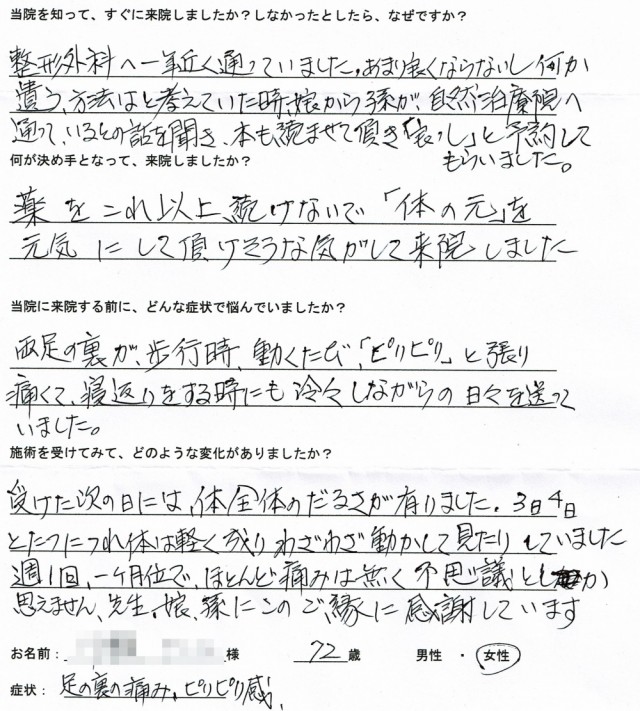 当院を知って、すぐに来院しましたか？しなかったとしたら、なぜですか？
整形外科へ一年近く通っていました。あまり良くならないし何か
違う方法はと考えていた時、娘から孫が、自然治療院へ
通っているとの話を聞き、本も読ませて頂き「良っし」と予約して
もらいました。
何が決め手となって、来院しましたか？
薬をこれ以上続けないで「体の元」を
元気にして頂けそうな気がして来院しました
当院に来院する前に、どんな症状で悩んでいましたか？
両足の裏が、歩行時、動くたび、「ピリピリ」と張り
痛くて、寝返りをする時にも冷々しながらの日々を送って
いました。
施術を受けてみて、どのような変化がありましたか？
受けた次の日には、体全体のだるさが有りました。3日4日
とたつにつれ体は軽く成りわざわざ動かして見たりしていました
週1回、一ヶ月位で、ほとんど痛みは無く不思議としか
思えません、先生、娘、孫にこのご縁に感謝しています
お名前： 様 72歳 男性 ・ 女性
症状： 足の裏の痛み。ピリピリ感、